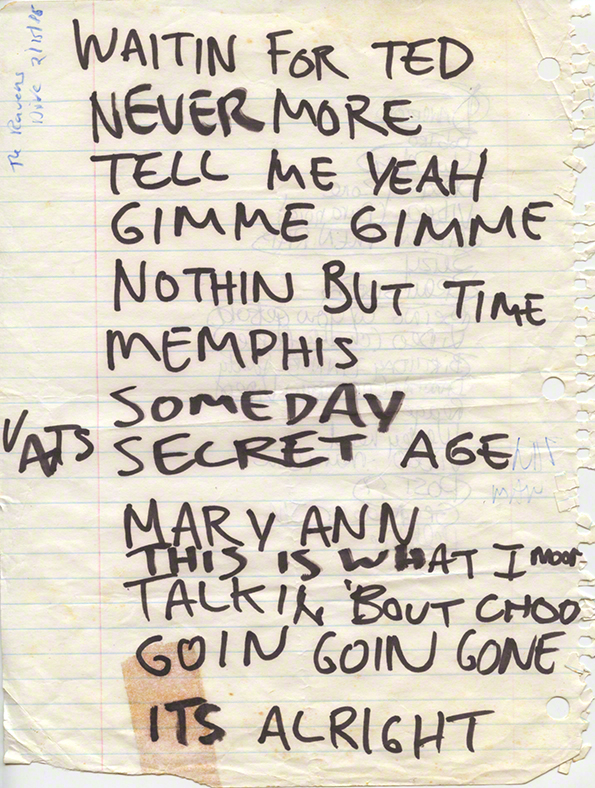 The Ravens
WAITIN FOR TED
NEVERMORE
TELL ME YEAH
GIMME GIMME
NOTHIN BUT TIME
MEMPHIS
SOMEDAY
VATS SECRET AGENT
man.
MARY ANN
THIS IS WHAT I
TALKIN 'BOUT CHOO
GOIN GOIN GONE
ITS ALRIGHT